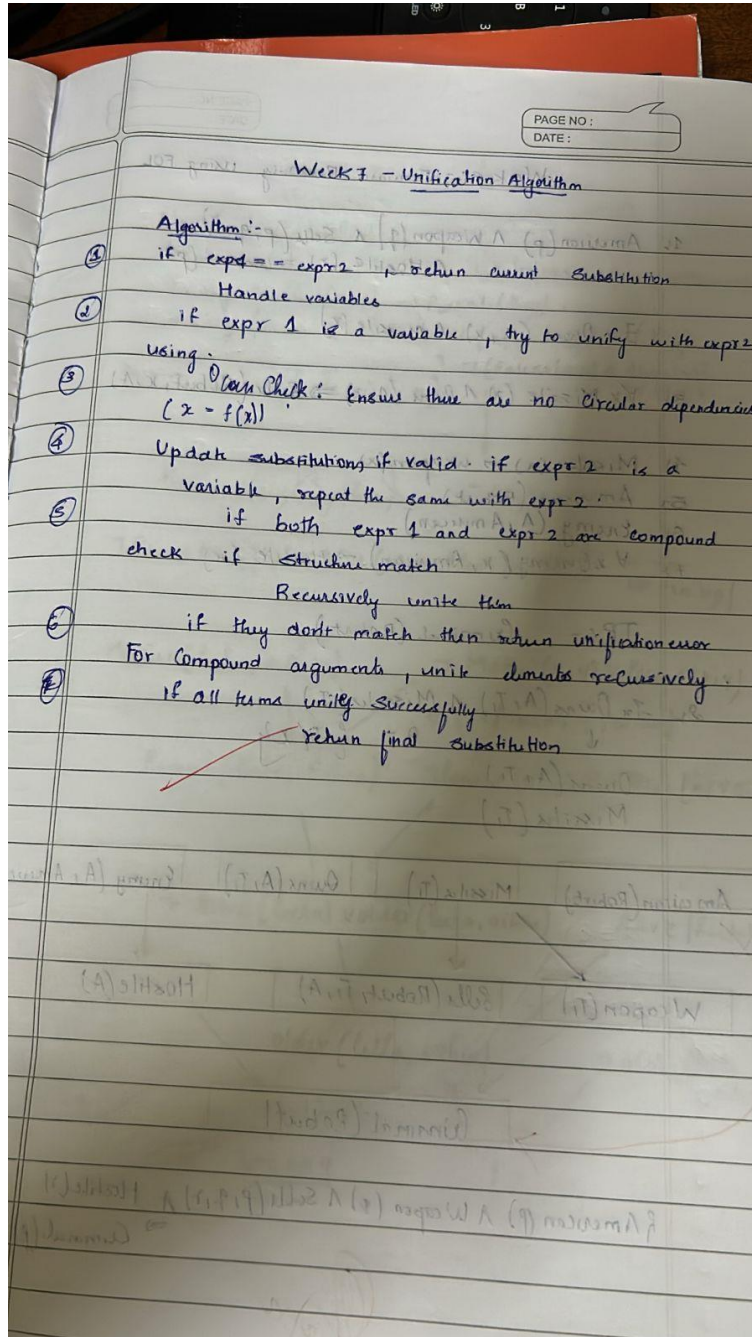 PAGE NO :
DATE :
Week 7 - Unification Algorithm
Algorithm :-
① if expr1 == expr2 , return current substitution
Handle variables
② if expr 1 is a variable , try to unify with expr2
using .
③ Occurs Check : Ensure there are no circular dependencies
(x = f(x))
④ Update substitutions if valid . if expr 2 is a
variable , repeat the same with expr 2 .
⑤ if both expr 1 and expr 2 are compound
check if structure match
Recursively unite them
⑥ if they don't match then return unification error
For compound arguments , unite elements recursively .
⑦ if all terms unify successfully
return final substitution